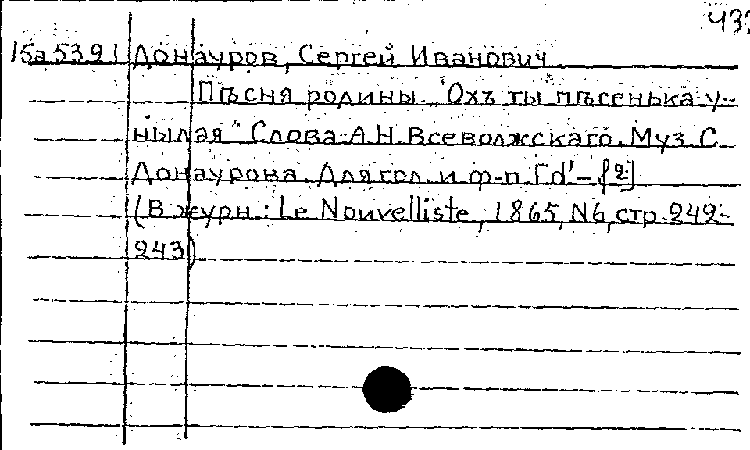 43
15а5391 Донауров, Сергей Иванович
Пѣсня родины. "Охъ ты пѣсенька у-
нылая" Слова А.Н. Всеволжскаго. Муз. С.
Донаурова. Для гол. и ф-п. [d'-f2]
(В журн.: Le Nouvelliste, 1865, N6, стр. 242-
243)